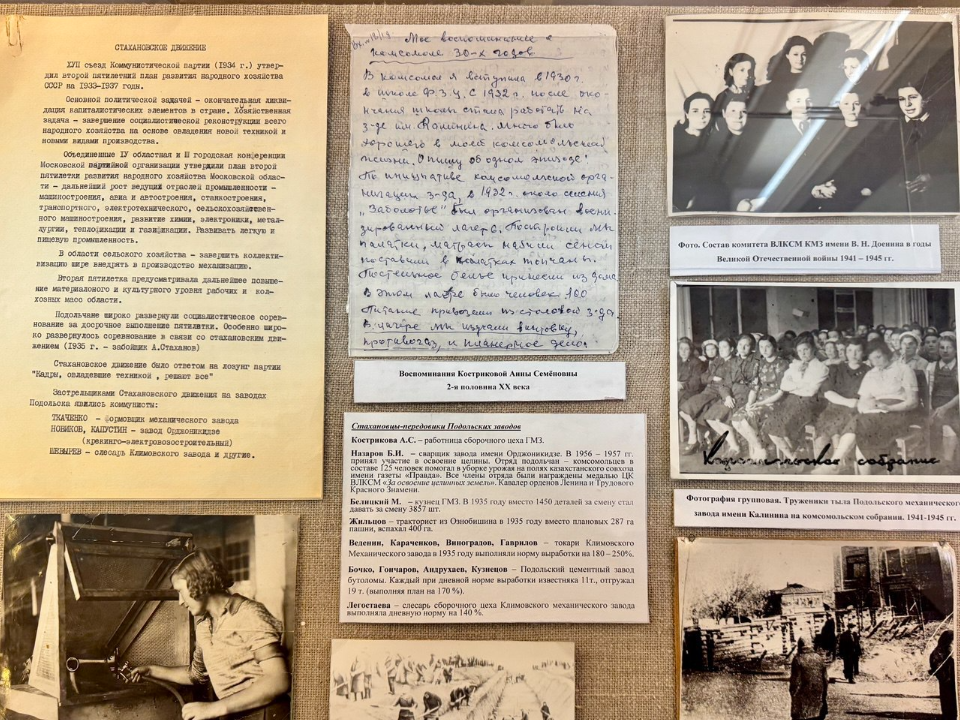 СТАХАНОВСКОЕ ДВИЖЕНИЕ
ХУП съезд Коммунистической партии (1934 г.) утвер-
дил второй пятилетний план развития народного хозяйства
СССР на 1933-1937 годы.
Основной политической задачей - окончательная ликви-
дация капиталистических элементов в стране. Хозяйственная
задача - завершение социалистической реконструкции всего
народного хозяйства на основе овладения новой техникой и
новыми видами производства.
Объединенные IУ областная и Ш городская конференции
Московской партийной организации утвердили план второй
пятилетки развития народного хозяйства Московской облас-
ти - дальнейший рост ведущих отраслей промышленности -
машиностроения, авиа и автостроения, станкостроения,
транспортного, электротехнического, сельскохозяйствен-
ного машиностроения, развитие химии, электроники, метал-
лургии, теплофикации и газификации. Развивать легкую и
пищевую промышленность.
В области сельского хозяйства - завершить коллекти-
визацию шире внедрить в производство механизацию.
Вторая пятилетка предусматривала дальнейшее повыше-
ние материального и культурного уровня рабочих и кол-
хозных масс области.
Подольчане широко развернули социалистическое сорев-
нование за досрочное выполнение пятилетки. Особенно широ-
ко развернулось соревнование в связи со стахановским дви-
жением (1935 г. - забойщик А.Стаханов)
Стахановское движение было ответом на лозунг партии
"Кадры, овладевшие техникой, решают все"
Застрельщиками Стахановского движения на заводах
Подольска явились коммунисты:
ТКАЧЕНКО - формовщик механического завода
НОВИКОВ, КАПУСТИН - завод Орджоникидзе
(крекинго-электровозостроительный)
- слесарь Климовского завода и другие.
Мое воспоминание о
комсомоле 30-х годов
В комсомол я вступила в 1930г.
в школе Ф.З.У. С 1932 г. после око-
нчания школы стала работать на
з-де им Калинина. много было
хорошего в моей комсомольской
жизни. Опишу об одном эпизоде:
По инициативе комсомольской орга-
низации з-да, в 1932 г. около селения
"Заболотье" был организован воени-
зированный лагерь. Построили мы
палатки, матрасы набили сеном
поставили в палатках топчаны.
Постельное белье принесли из дома
В этом лагере было человек 160
Питание привозили из столовой з-да.
В лагере мы изучали винтовку,
противогаз, и планерное дело.
Воспоминания Костриковой Анны Семёновны
2-я половина XX века
Стахановцы-передовики Подольских заводов
Кострикова А.С. – работница сборочного цеха ГМЗ.
Назаров Б.И. – сварщик завода имени Орджоникидзе. В 1956 – 1957 гг.
принял участие в освоение целины. Отряд подольчан – комсомольцев в
составе 125 человек помогал в уборке урожая на полях казахстанского совхоза
имени газеты «Правда». Все члены отряда были награждены медалью ЦК
ВЛКСМ «За освоение целинных земель». Кавалер орденов Ленина и Трудового
Красного Знамени.
Белицкий М. – кузнец ГМЗ. В 1935 году вместо 1450 деталей за смену стал
давать за смену 3857 шт.
Жильцов – тракторист из Ознобишина в 1935 году вместо плановых 287 га
пашни, вспахал 400 га.
Веденин, Караченков, Виноградов, Гаврилов – токари Климовского
Механического завода в 1935 году выполняли норму выработки на 180 – 250%.
Бочко, Гончаров, Андрухаев, Кузнецов – Подольский цементный завод
бутоломы. Каждый при дневной норме выработки известняка 11т., отгружал
19 т. (выполняя план на 170 %).
Легостаева – слесарь сборочного цеха Климовского механического завода
выполняла дневную норму на 140 %.
Фото. Состав комитета ВЛКСМ КМЗ имени В. Н. Доенина в годы
Великой Отечественной войны 1941 – 1945 гг.
Комсомольское собрание
Фотография групповая. Труженики тыла Подольского механического
завода имени Калинина на комсомольском собрании. 1941-1945 гг.